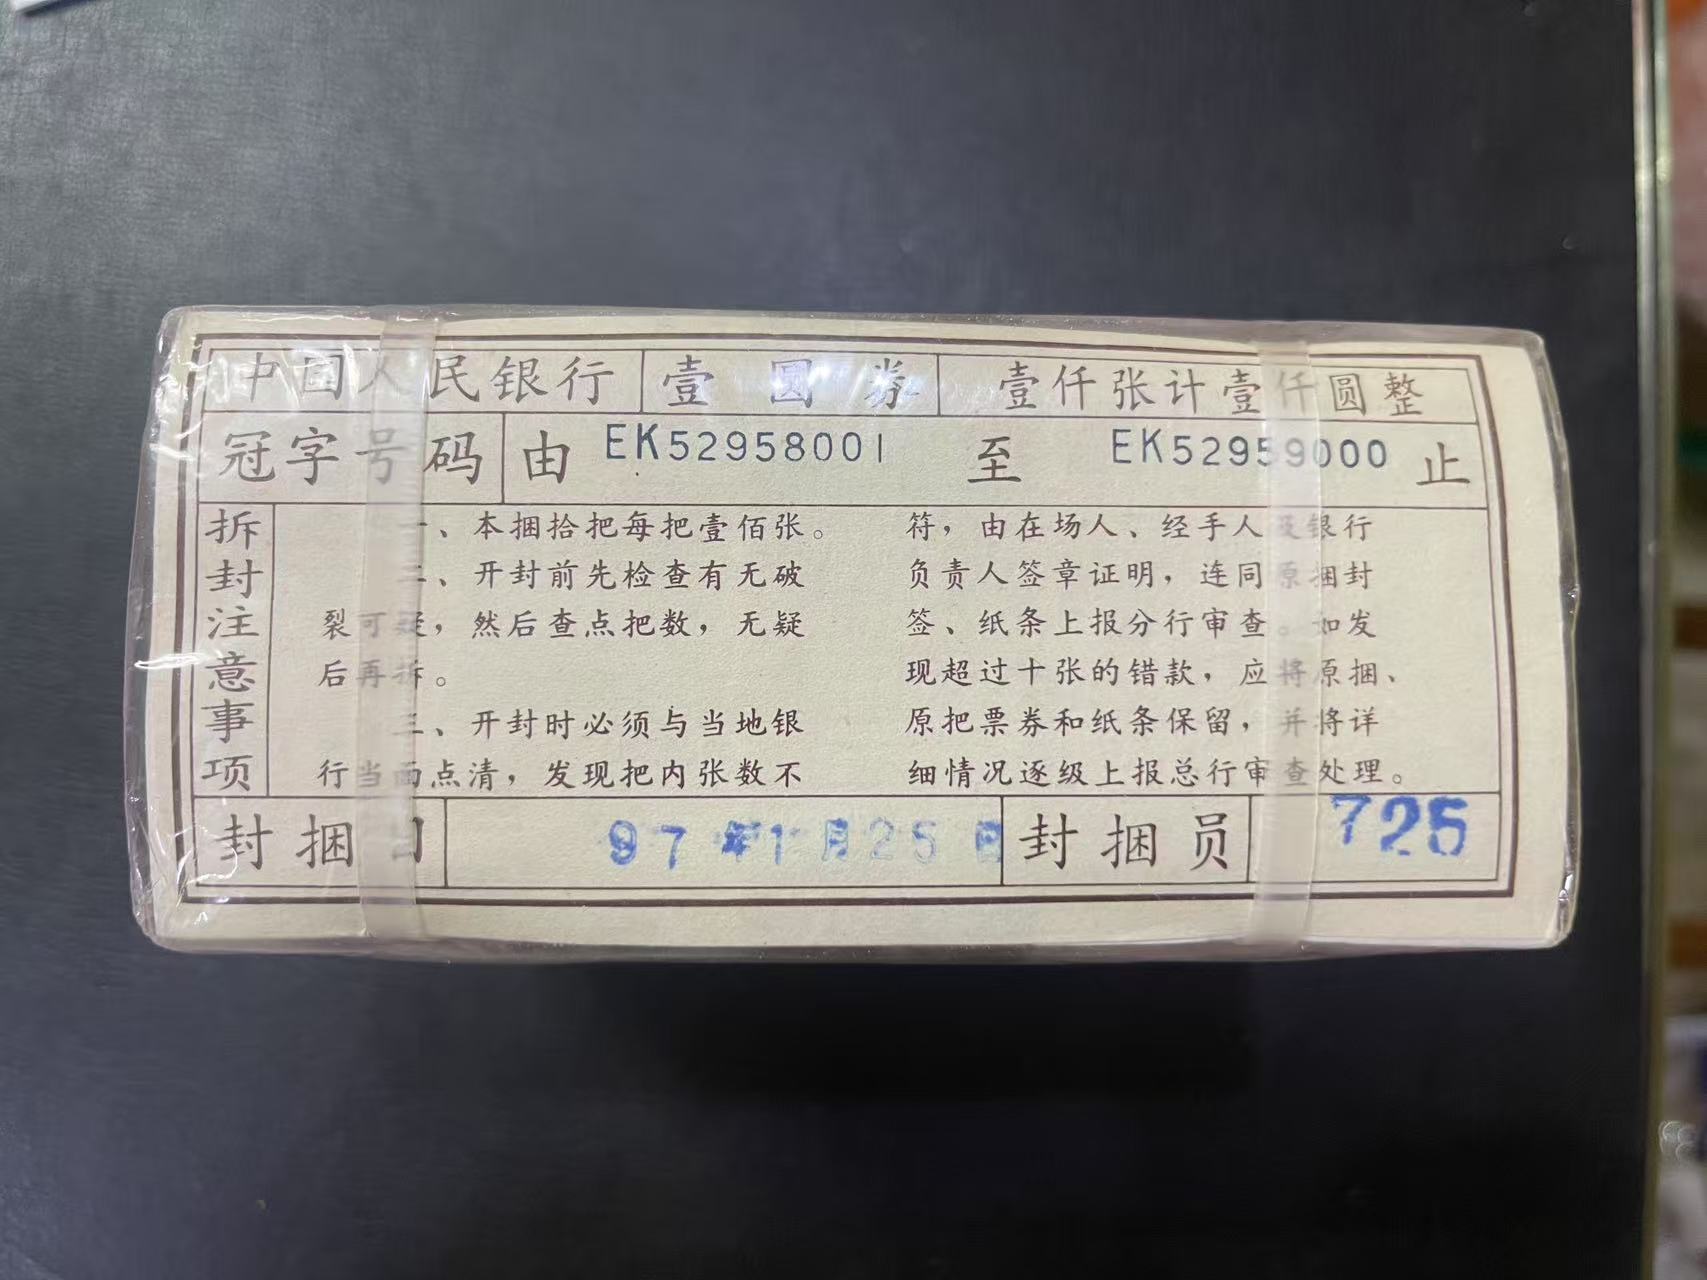 中国人民银行 壹圆券 壹仟张计壹仟圆整
冠字号码 由 EK52958001 至 EK52959000 止
拆封注意事项
一、本捆拾把每把壹佰张。
二、开封前先检查有无破
裂可疑，然后查点把数，无疑
后再拆。
三、开封时必须与当地银
行当面点清，发现把内张数不
符，由在场人、经手人及银行
负责人签章证明，连同原捆封
签、纸条上报分行审查。如发
现超过十张的错款，应将原捆、
原把票券和纸条保留，并将详
细情况逐级上报总行审查处理。
封捆日 97年1月25日 封捆员 725